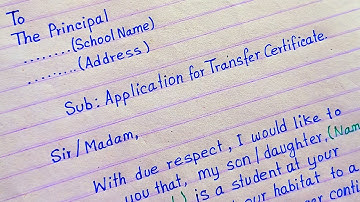 To
The Principal
.........(School Name)
..........(Address)
Sub: Application for Transfer Certificate.
Sir/Madam,
With due respect, I would like to
you that, my son/daughter,
is a student at your
habitat to a